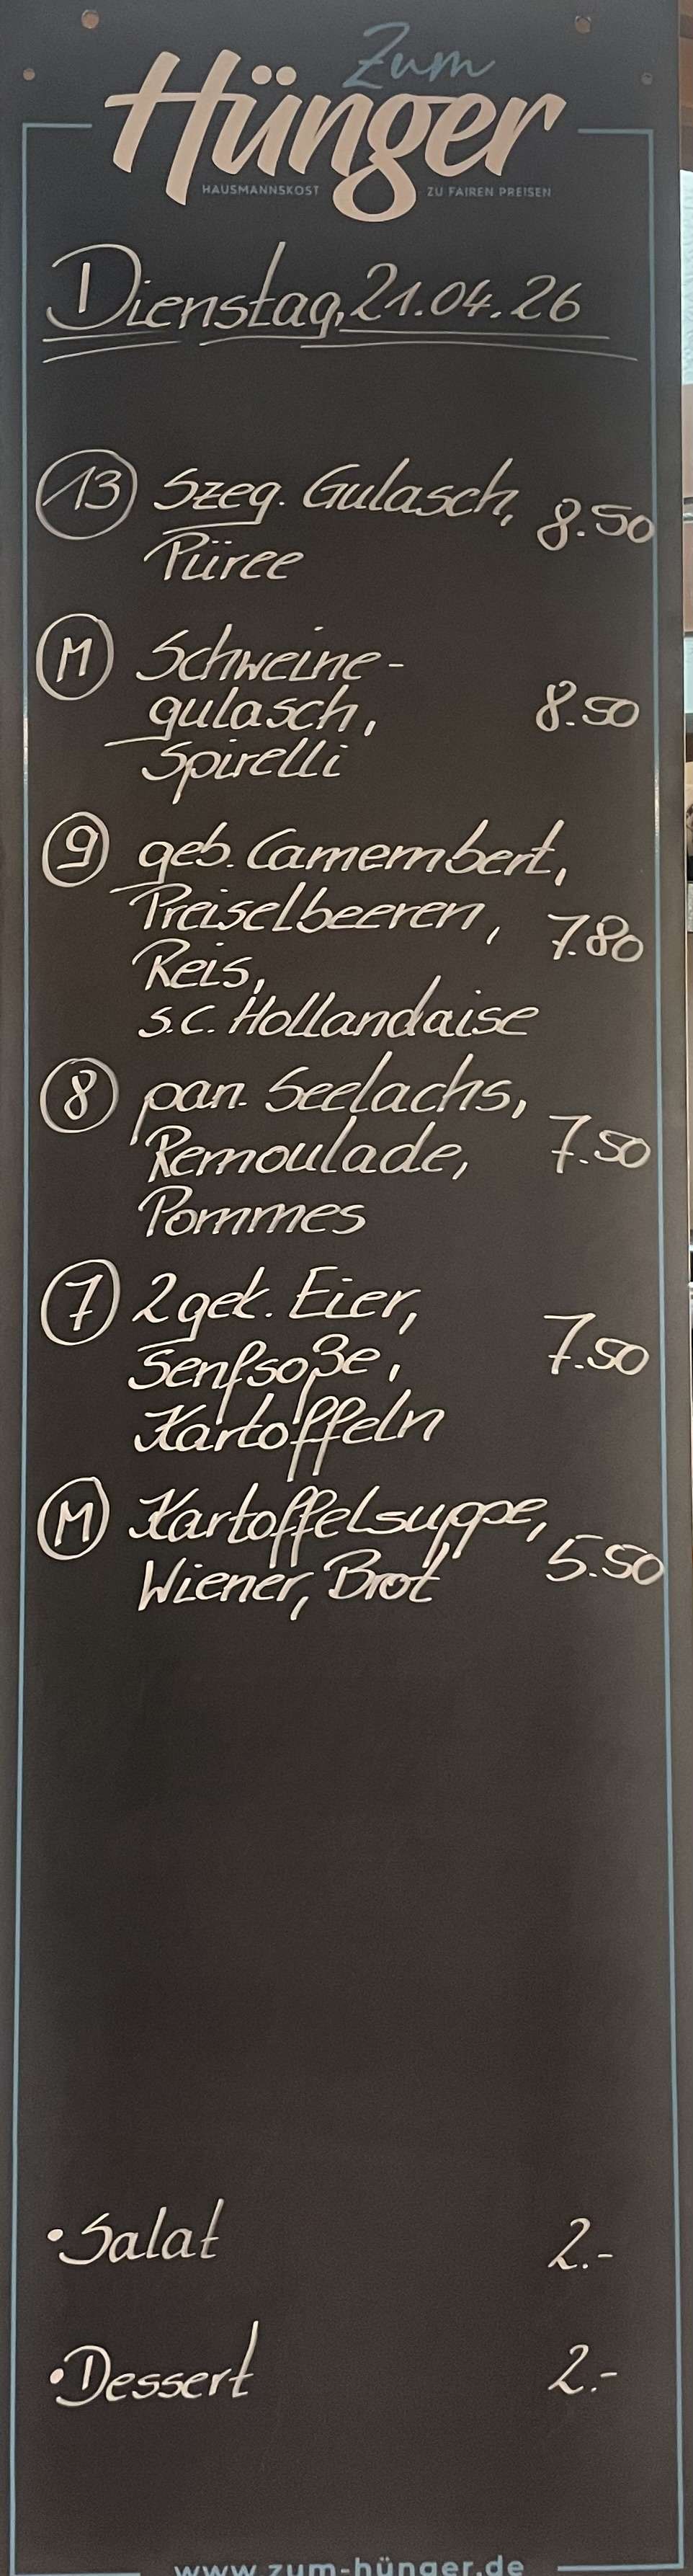 Zum
Hünger
HAUSMANNSKOST ZU FAIREN PREISEN
Dienstag, 21.04.26
13 Szeg. Gulasch, 8.50
Püree
M Schweine-
gulasch, 8.50
Spirelli
9 geb. Camembert,
Preiselbeeren, 7.80
Reis,
s.c. Hollandaise
8 pan. Seelachs,
Remoulade, 7.50
Pommes
7 2 gek. Eier,
Senfsoße, 7.50
Kartoffeln
M Kartoffelsuppe,
Wiener, Brot 5.50
•Salat 2.-
•Dessert 2.-
www.zum-hünger.de